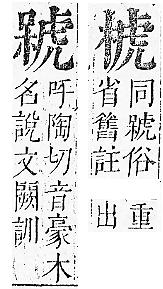 椃
同號俗重
省舊註出
呼陶切音豪木
名說文闕訓